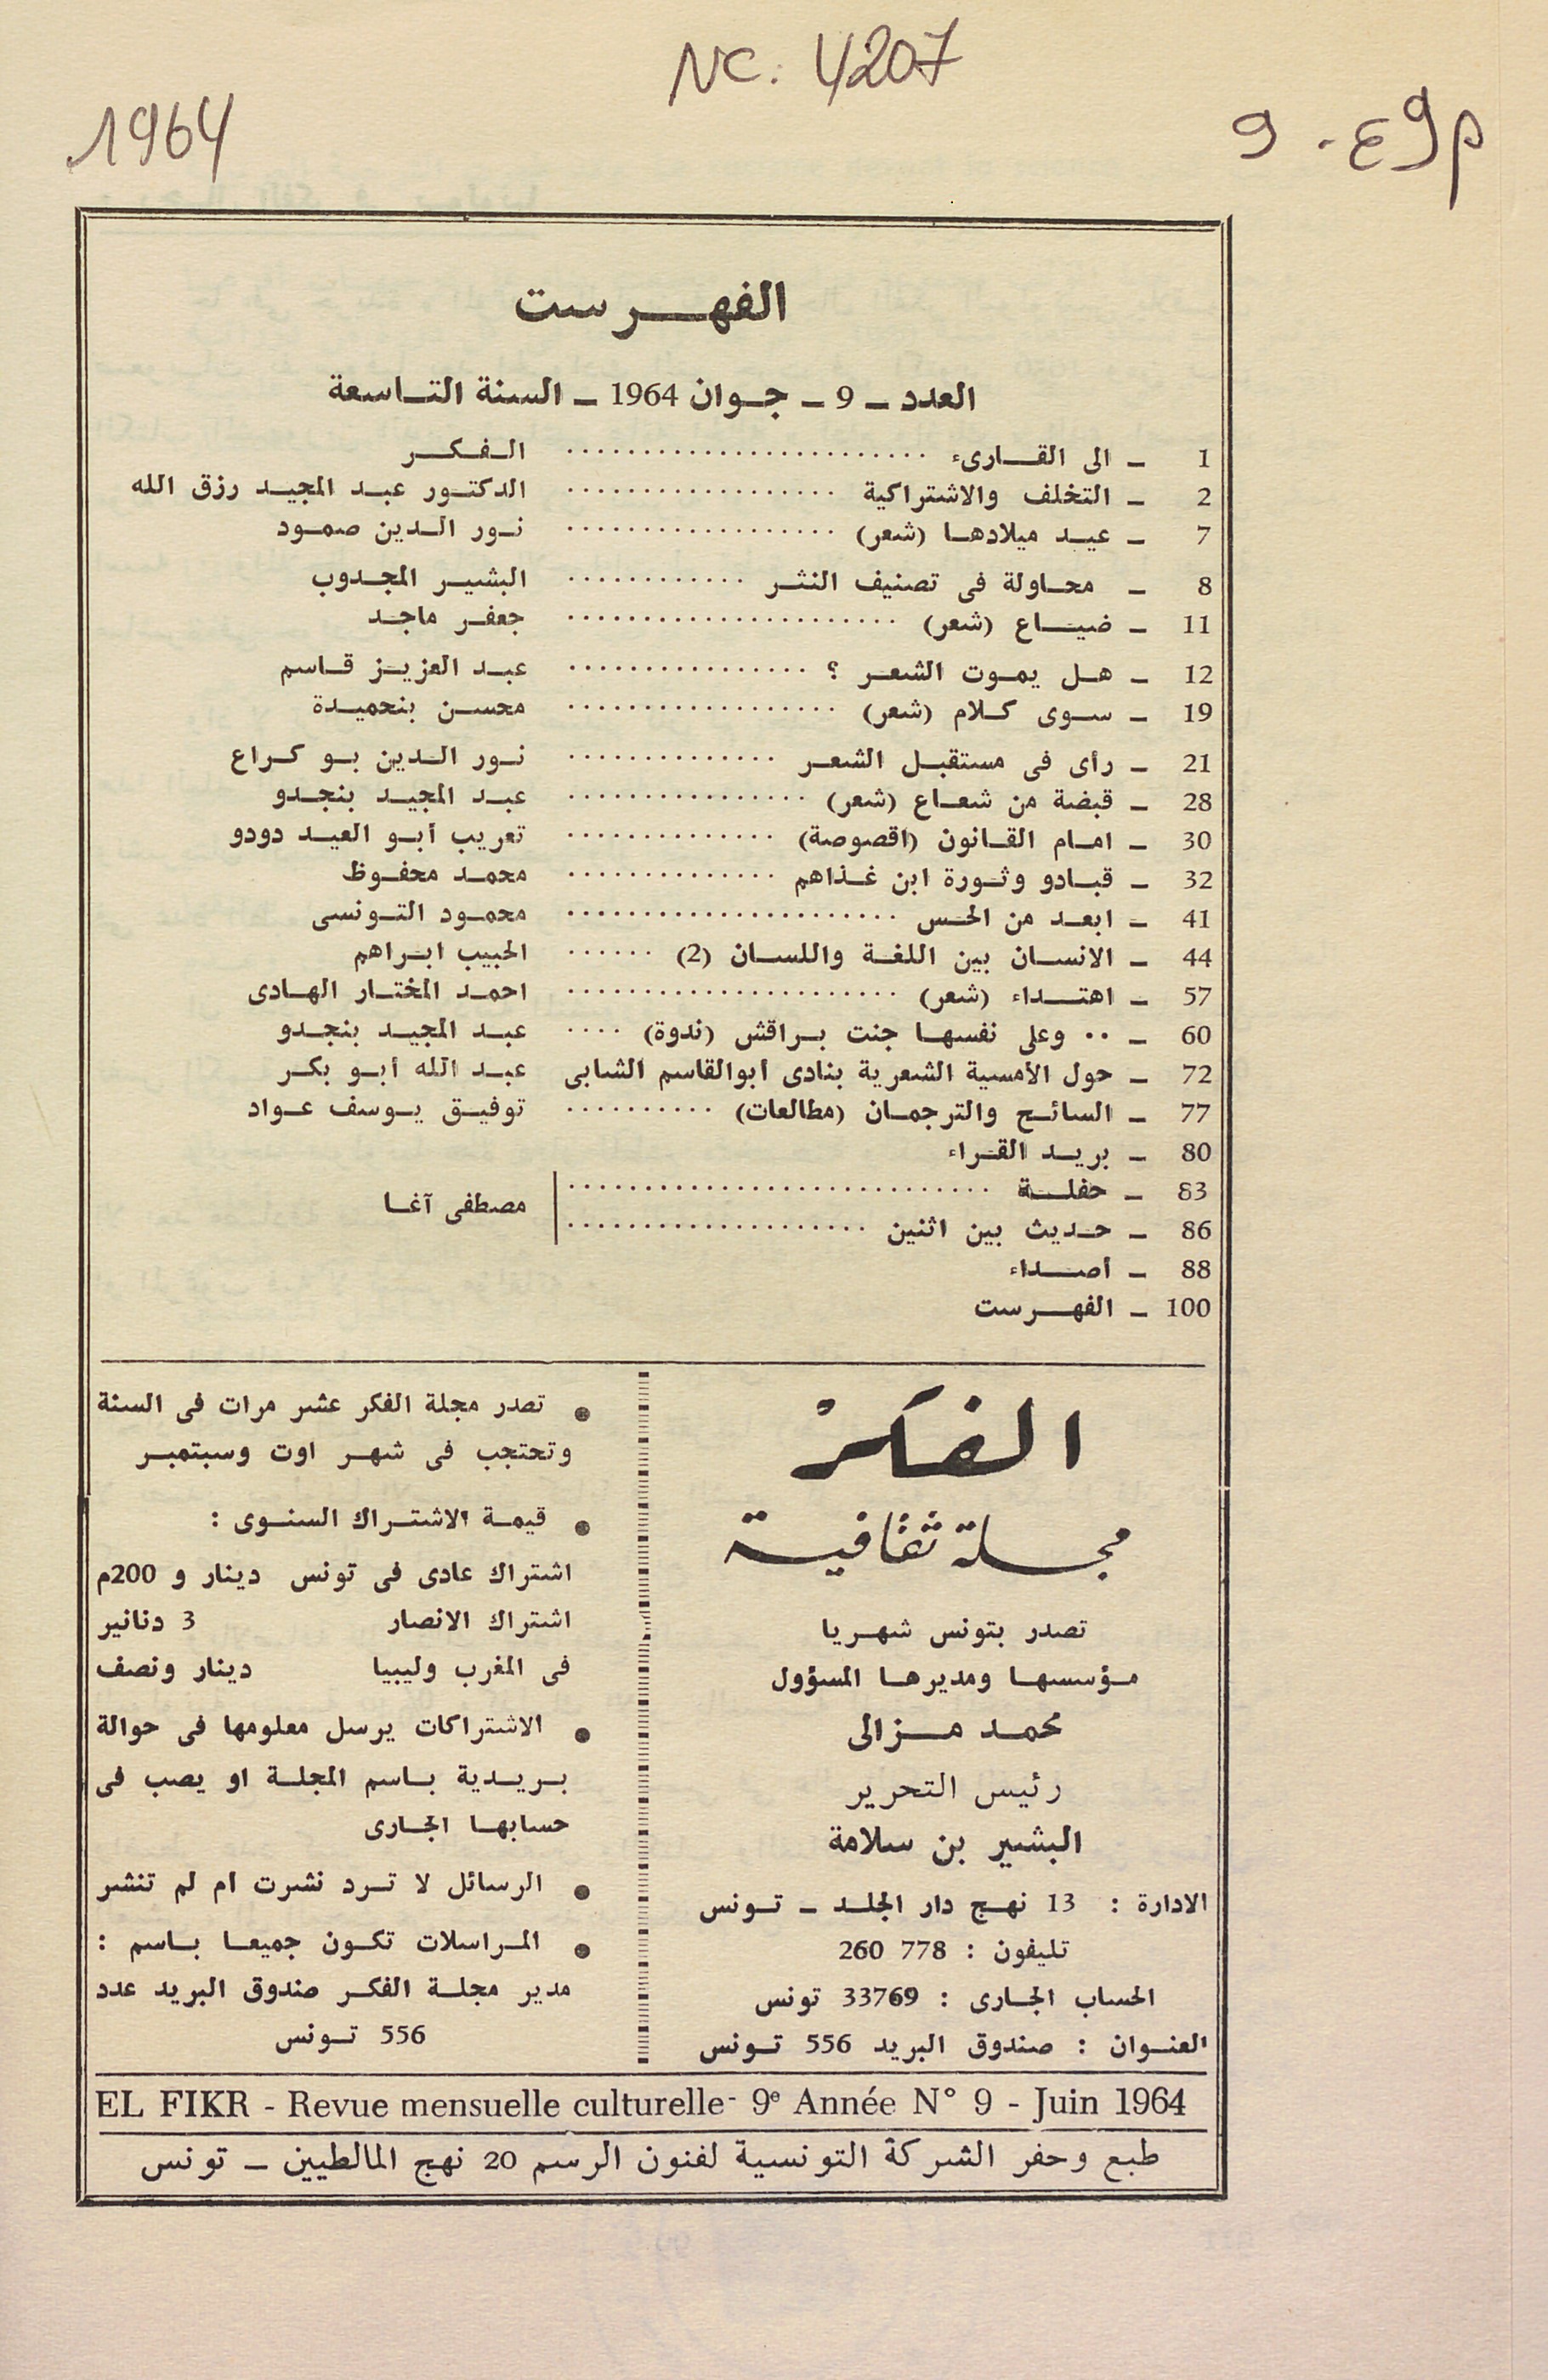 NC. 4207
1964
م 9ع - 9
الفهرست
العدد ـ 9 ـ جوان 1964 ـ السنة التاسعة
1 ـ الى القارىء ........................ الفكر
2 ـ التخلف والاشتراكية .................. الدكتور عبد المجيد رزق الله
7 ـ عيد ميلادها (شعر) .................. نور الدين صمود
8 ـ محاولة فى تصنيف النثر ............ البشير المجدوب
11 ـ ضياع (شعر) ...................... جعفر ماجد
12 ـ هل يموت الشعر ؟ ................ عبد العزيز قاسم
19 ـ سوى كلام (شعر) .................. محسن بنحميدة
21 ـ رأى فى مستقبل الشعر .............. نور الدين بو كراع
28 ـ قبضة من شعاع (شعر) ................ عبد المجيد بنجدو
30 ـ امام القانون (اقصوصة) .............. تعريب أبو العيد دودو
32 ـ قبادو وثورة ابن غذاهم .............. محمد محفوظ
41 ـ ابعد من الحس ...................... محمود التونسى
44 ـ الانسان بين اللغة واللسان (2) ...... الحبيب ابراهم
57 ـ اهتداء (شعر) ...................... احمد المختار الهادى
60 ـ .. وعلى نفسها جنت براقش (ندوة) .... عبد المجيد بنجدو
72 ـ حول الأمسية الشعرية بنادى أبوالقاسم الشابى عبد الله أبو بكر
77 ـ السائح والترجمان (مطالعات) .......... توفيق يوسف عواد
80 ـ بريد القراء
83 ـ حفلة ............................
مصطفى آغا
86 ـ حديث بين اثنين ....................
88 ـ أصداء
100 ـ الفهرست
الفكر
مجلة ثقافية
تصدر بتونس شهريا
مؤسسها ومديرها المسؤول
محمد مزالى
رئيس التحرير
البشير بن سلامة
الادارة : 13 نهج دار الجلد ـ تونس
تليفون : 778 260
الحساب الجارى : 33769 تونس
العنوان : صندوق البريد 556 تونس
● تصدر مجلة الفكر عشر مرات فى السنة
وتحتجب فى شهر اوت وسبتمبر
● قيمة الاشتراك السنوى :
اشتراك عادى فى تونس دينار و 200م
اشتراك الانصار 3 دنانير
فى المغرب وليبيا دينار ونصف
● الاشتراكات يرسل معلومها فى حوالة
بريدية باسم المجلة او يصب فى
حسابها الجارى
● الرسائل لا ترد نشرت ام لم تنشر
● المراسلات تكون جميعا باسم :
مدير مجلة الفكر صندوق البريد عدد
556 تونس
EL FIKR - Revue mensuelle culturelle- 9e Année N° 9 - Juin 1964
طبع وحفر الشركة التونسية لفنون الرسم 20 نهج المالطيين ـ تونس